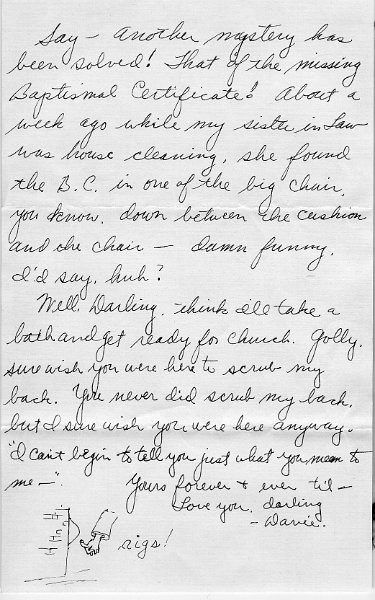 Say — Another mystery has
been solved! That of the missing
Baptismal Certificate! About a
week ago while my sister in law
was house cleaning, she found
the B.C. in one of the big chair,
you know, down between the cushion
and the chair — damn funny,
I'd say, huh?
Well, Darling, think I'll take a
bath and get ready for church. Golly,
sure wish you were here to scrub my
back. You never did scrub my back,
but I sure wish you were here anyway.
"I can't begin to tell you just what you mean to
me —".
Yours forever & ever til —
Love you, darling
— Davie.
rigs!